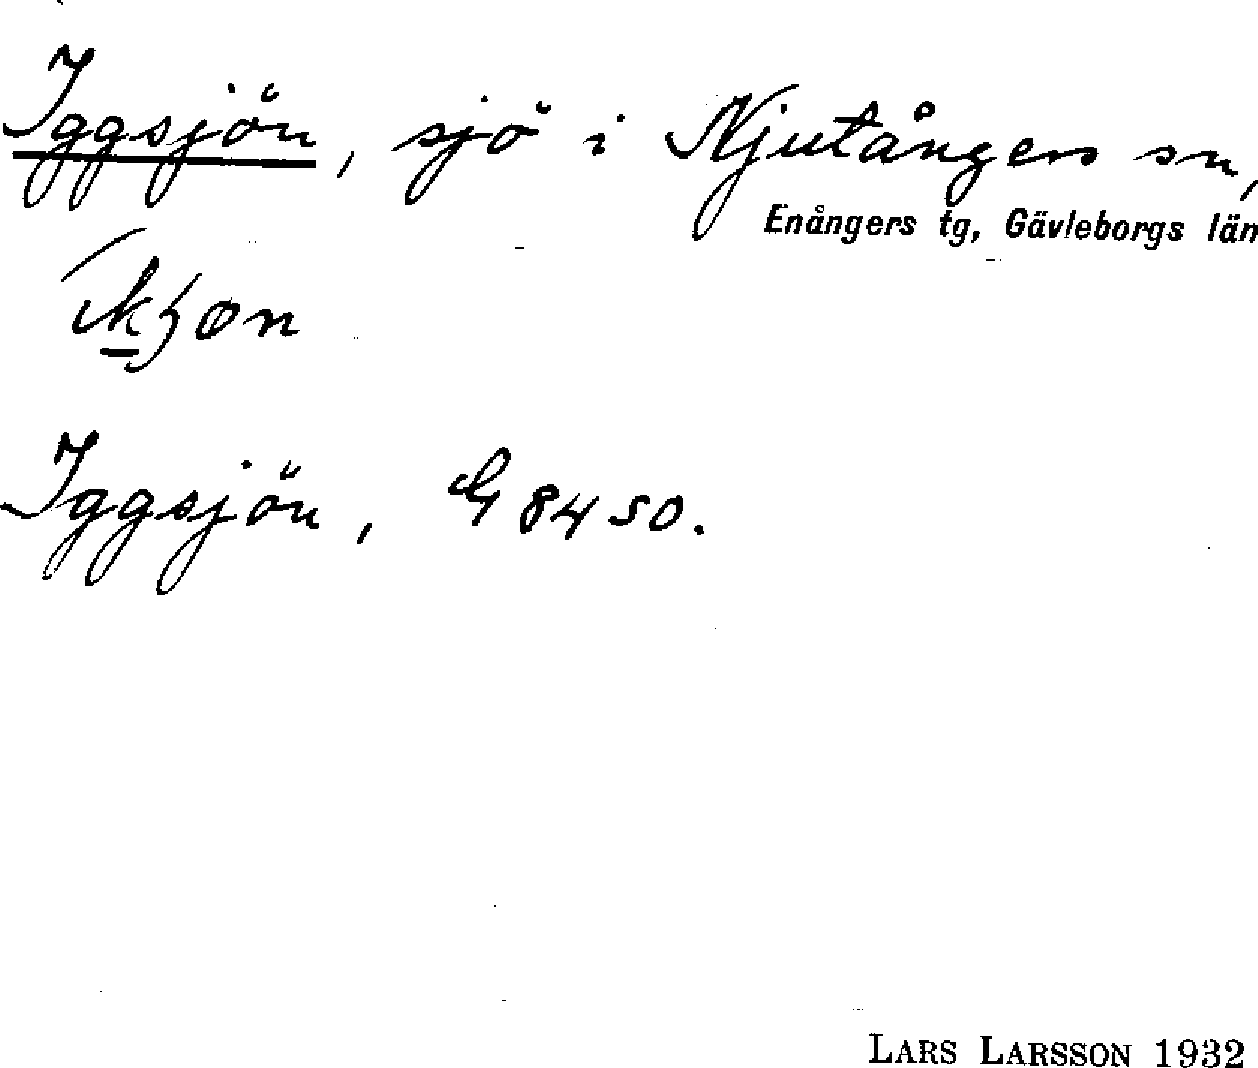 Iggsjön, sjö i Njutångers sn,
Enångers tg, Gävleborgs län
Iggsjön, G 84 SO.
LARS LARSSON 1932